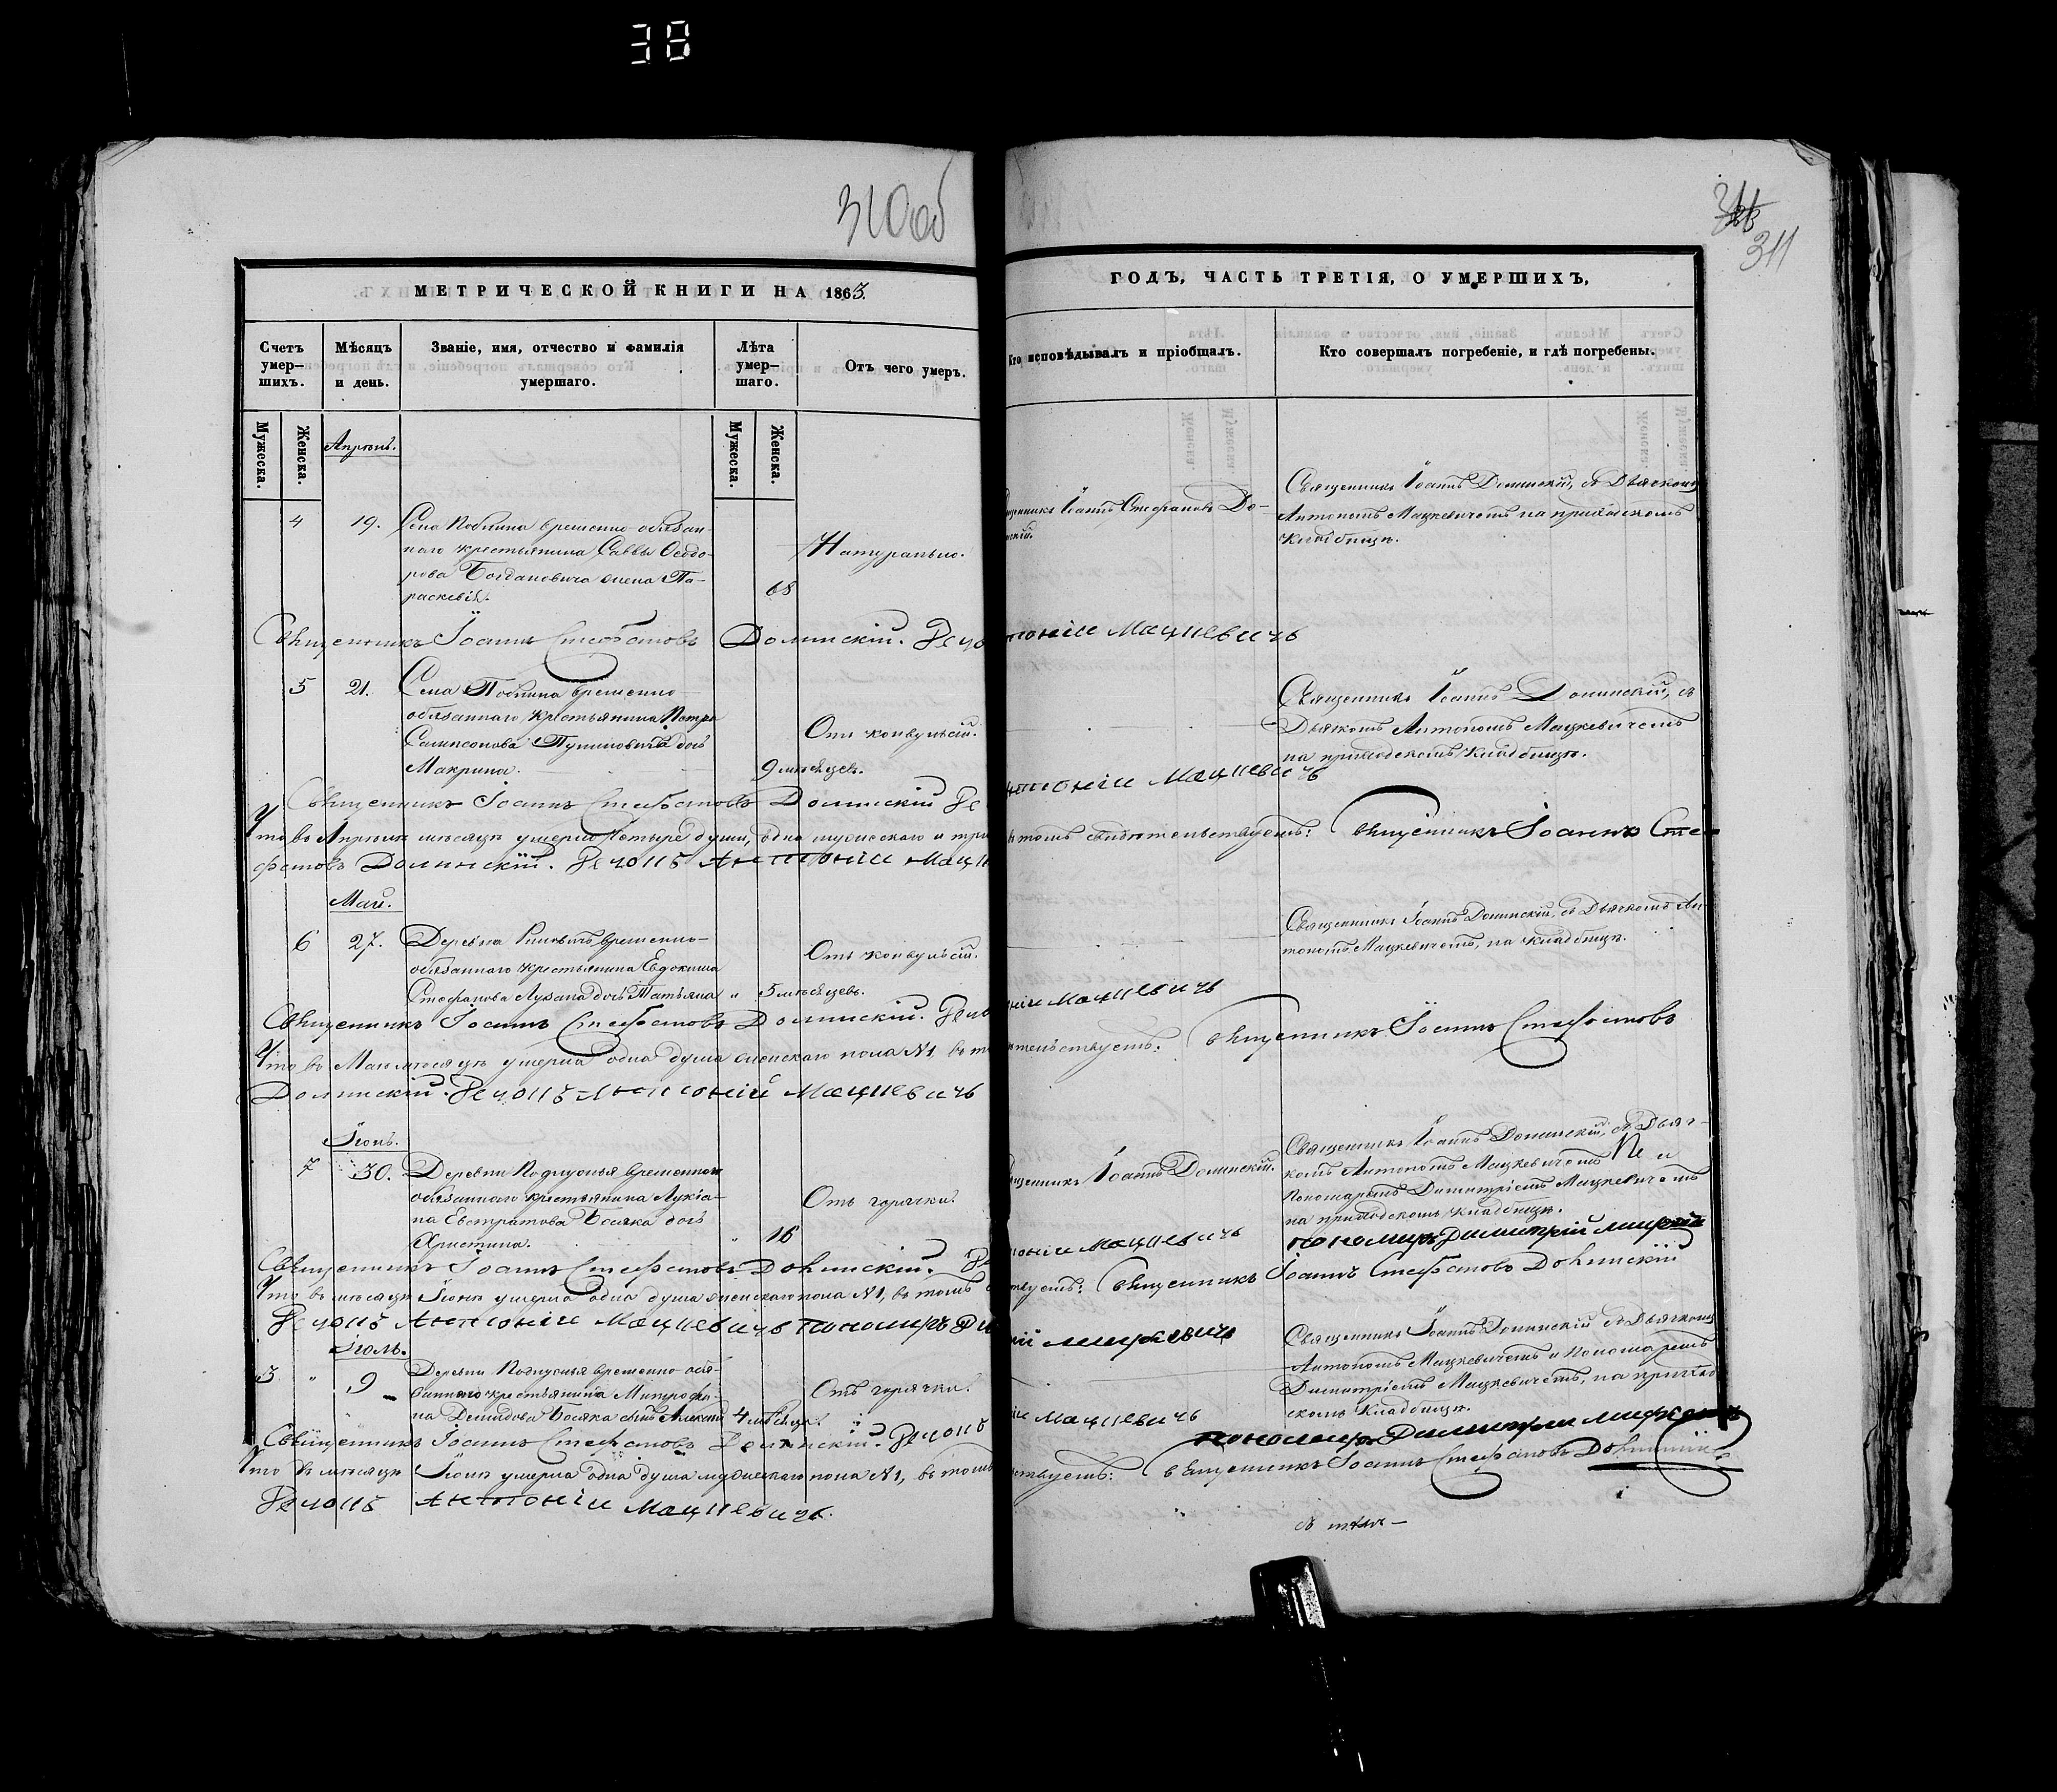 38
310об
311
МЕТРИЧЕСКОЙ КНИГИ НА 1863.
ГОДЪ, ЧАСТЬ ТРЕТІЯ, О УМЕРШИХЪ,
Счетъ умер-
шихъ.
Мѣсяцъ
и день.
Званіе, имя, отчество и фамилія
умершаго.
Лѣта
умер-
шаго.
Отъ чего умеръ.
Кто исповѣдывалъ и пріобщалъ.
Кто совершалъ погребеніе, и гдѣ погребены.
Мужеска.
Женска.
Мужеска.
Женска.
Апрѣль.
4 19. Села временно-обязан-
наго крестьянина Саввы Ѳеодо-
рова Богдановича жена Па-
раскевія. 68
Натурально.
Іоаннъ Стефановъ До-
Священникъ Іоаннъ Долинскій, съ Дьячкомъ
Антономъ Мацкевичемъ на приходскомъ
Кладбищѣ.
Священникъ Іоаннъ Стефановъ Долинскій.
Мацкевичъ
5 21. Села временно-
обязаннаго крестьянина Петра
Сампсонова дочь
Макрина. 9 мѣсяцевъ.
Отъ конвульсій.
Священникъ Іоаннъ Долинскій, съ
Дьякомъ Антономъ Мацкевичемъ
на приходскомъ Кладбищѣ.
Священникъ Іоаннъ Стефановъ Долинскій
Мацкевичъ
Что въ Апрѣлѣ мѣсяцѣ умерло четыре души, одна мужескаго и три
томъ свидѣтельствуемъ: Священникъ Іоаннъ Сте-
фановъ Долинскій. Антоній
Май.
6 27. Деревни временно-
обязаннаго крестьянина Евдокима
Стефанова дочь Татьяна „ 5 мѣсяцевъ.
Отъ конвульсій.
Священникъ Іоаннъ Долинскій, съ Дьячкомъ Ан-
тономъ Мацкевичемъ, на кладбищѣ.
Священникъ Іоаннъ Стефановъ Долинскій.
Мацкевичъ
Что въ Маѣ мѣсяцѣ умерла одна душа женскаго пола №1, въ
Священникъ Іоаннъ Стефановъ
Долинскій. Антоній Мацкевичъ
Іюнь.
7 30. Деревни временно-
обязаннаго крестьянина Лукіа-
на Евстратова Босяка дочь
Христина. „ 16
Отъ горячки.
Іоаннъ Долинскій.
Священникъ Іоаннъ Долинскій, съ Дьяч-
комъ Антономъ Мацкевичемъ и
Пономаремъ Димитріемъ Мацкевичемъ
на приходскомъ Кладбищѣ.
Священникъ Іоаннъ Стефановъ Долинскій.
Мацкевичъ
Пономарь Димитрій
Что въ мѣсяцѣ Іюнѣ умерла одна душа женскаго пола №1, въ томъ
Священникъ Іоаннъ Стефановъ Долинскій
Антоній Мацкевичъ Пономарь
Мацкевичъ
Іюль.
3 „ 9 Деревни временно-обя-
заннаго крестьянина Митрофа-
на Демидова Босяка сынъ Алексій 4 мѣсяца.
Отъ горячки.
Священникъ Іоаннъ Долинскій съ Дьячкомъ
Антономъ Мацкевичемъ и Пономаремъ
Димитріемъ Мацкевичемъ, на приход-
скомъ Кладбищѣ.
Священникъ Іоаннъ Стефановъ Долинскій.
Мацкевичъ
Пономарь Димитрій
Что въ мѣсяцѣ умерла одна душа мужескаго пола №1, въ томъ
Священникъ Іоаннъ Стефановъ Долинскій
Антоній Мацкевичъ.